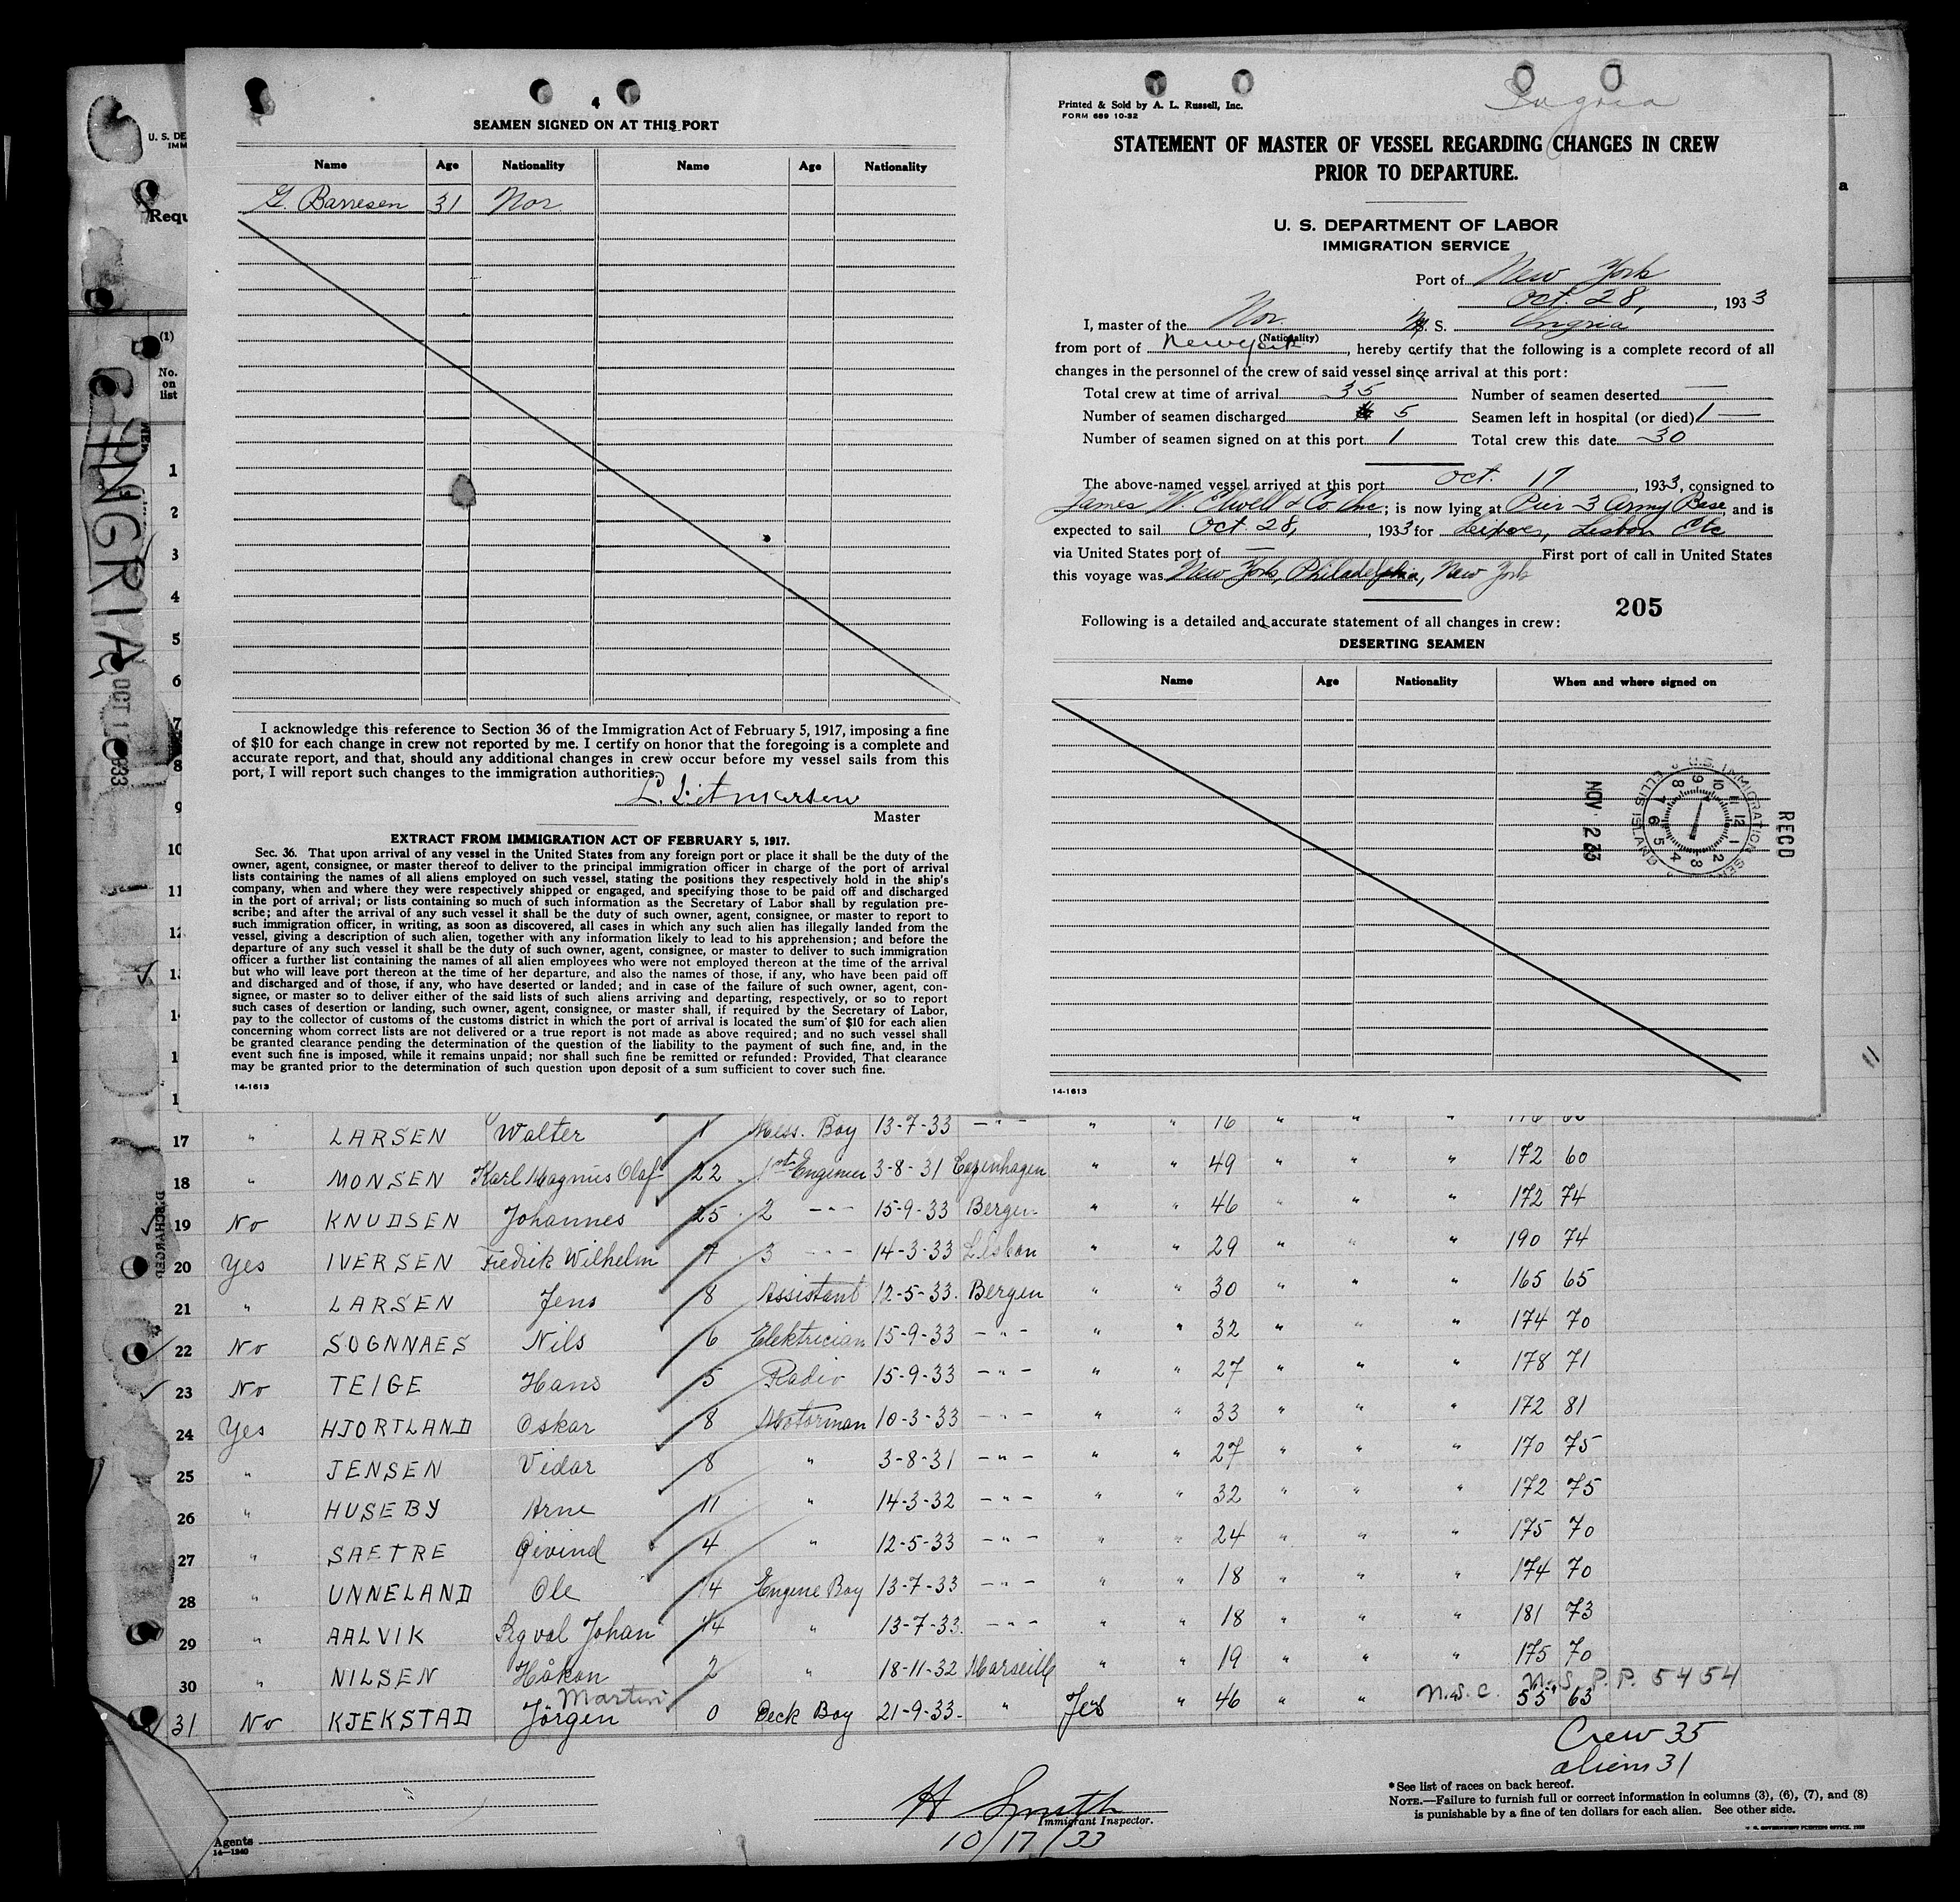 4
SEAMEN SIGNED ON AT THIS PORT
Name Age Nationality Name Age Nationality
G. Barresen 31 Nor.
I acknowledge this reference to Section 36 of the Immigration Act of February 5, 1917, imposing a fine
of $10 for each change in crew not reported by me. I certify on honor that the foregoing is a complete and
accurate report, and that, should any additional changes in crew occur before my vessel sails from this
port, I will report such changes to the immigration authorities.
Master
EXTRACT FROM IMMIGRATION ACT OF FEBRUARY 5, 1917.
Sec. 36. That upon arrival of any vessel in the United States from any foreign port or place it shall be the duty of the
owner, agent, consignee, or master thereof to deliver to the principal immigration officer in charge of the port of arrival
lists containing the names of all aliens employed on such vessel, stating the positions they respectively hold in the ship's
company, when and where they were respectively shipped or engaged, and specifying those to be paid off and discharged
in the port of arrival; or lists containing so much of such information as the Secretary of Labor shall by regulation pre-
scribe; and after the arrival of any such vessel it shall be the duty of such owner, agent, consignee, or master to report to
such immigration officer, in writing, as soon as discovered, all cases in which any such alien has illegally landed from the
vessel, giving a description of such alien, together with any information likely to lead to his apprehension; and before the
departure of any such vessel it shall be the duty of such owner, agent, consignee, or master to deliver to such immigration
officer a further list containing the names of all alien employees who were not employed thereon at the time of the arrival
but who will leave port thereon at the time of her departure, and also the names of those, if any, who have been paid off
and discharged and of those, if any, who have deserted or landed; and in case of the failure of such owner, agent, con-
signee, or master so to deliver either of the said lists of such aliens arriving and departing, respectively, or so to report
such cases of desertion or landing, such owner, agent, consignee, or master shall, if required by the Secretary of Labor,
pay to the collector of customs of the customs district in which the port of arrival is located the sum of $10 for each alien
concerning whom correct lists are not delivered or a true report is not made as above required; and no such vessel shall
be granted clearance pending the determination of the question of the liability to the payment of such fine, and, in the
event such fine is imposed, while it remains unpaid; nor shall such fine be remitted or refunded: Provided, That clearance
may be granted prior to the determination of such question upon deposit of a sum sufficient to cover such fine.
14-1613
Ingria
Printed & Sold by A. L. Russell, Inc.
FORM 689 10-32
STATEMENT OF MASTER OF VESSEL REGARDING CHANGES IN CREW
PRIOR TO DEPARTURE.
U. S. DEPARTMENT OF LABOR
IMMIGRATION SERVICE
Port of New York
Oct 28, , 1933
I, master of the Nor. M. S. Ingria
(Nationality)
from port of New York, hereby certify that the following is a complete record of all
changes in the personnel of the crew of said vessel since arrival at this port:
Total crew at time of arrival 35 Number of seamen deserted —
Number of seamen discharged 5 Seamen left in hospital (or died) 1 —
Number of seamen signed on at this port 1 Total crew this date 30
The above-named vessel arrived at this port Oct. 17, 1933, consigned to
James W. Elwell & Co. Inc; is now lying at Pier 3 Army Base, and is
expected to sail Oct 28, , 1933 for Leixoes, Lisbon Etc
via United States port of — First port of call in United States
this voyage was New York, Philadelphia, New York
205
Following is a detailed and accurate statement of all changes in crew:
DESERTING SEAMEN
Name Age Nationality When and where signed on
RECD
U.S. IMMIGRATION SER.
ELLIS ISLAND
NOV 2 33
14-1613
U. S. DE
IMM
Requ
a
(1)
No.
on
list
INGRIA
OCT 1 1933
DISCHARGED
1
2
3
4
5
6
7
8
9
10
11
12
13
14
1
1
11
17 " LARSEN Walter 1 Mess. Boy 13-7-33 -"- " " 16 " " "
18 " MONSEN Karl Magnus Olaf 22 1st Engineer 3-8-31 Copenhagen " " 49 " " " 172 60
19 No KNUDSEN Johannes 25 2 -"- 15-9-33 Bergen " " 46 " " " 172 74
20 Yes IVERSEN Fredrik Wilhelm 7 3 -"- 14-3-33 Lisbon " " 29 " " " 190 74
21 " LARSEN Jens 8 Assistant 12-5-33. Bergen " " 30 " " " 165 65
22 No SOGNNAES Nils 6 Elektrician 15-9-33 -"- " " 32 " " " 174 70
23 No TEIGE Hans 5 Radio 15-9-33 -"- " " 27 " " " 178 71
24 Yes HJORTLAND Oskar 8 Motorman 10-3-33 -"- " " 33 " " " 172 81
25 " JENSEN Vidar 8 " 3-8-31 -"- " " 27 " " " 170 75
26 " HUSEBY Arne 11 " 14-3-32 -"- " " 32 " " " 172 75
27 " SAETRE Öivind 4 " 12-5-33 -"- " " 24 " " " 175 70
28 " UNNELAND Ole 14 Engine Boy 13-7-33 -"- " " 18 " " " 174 70
29 " AALVIK Johan 14 " 13-7-33. -"- " " 18 " " " 181 73
30 " NILSEN Håkon 2 " 18-11-32 Marseille " " 19 " " " 175 70
N.S. P.P. 5454
31 No KJEKSTAD Jörgen Martin 0 Deck Boy 21-9-33. " Yes " 46 " " N.S.C. 5'5" 63
Crew 35
aliens 31
H Smith
Immigrant Inspector.
10/17/33
*See list of races on back hereof.
NOTE.—Failure to furnish full or correct information in columns (3), (6), (7), and (8)
is punishable by a fine of ten dollars for each alien. See other side.
U. S. GOVERNMENT PRINTING OFFICE
Agents
14—1240